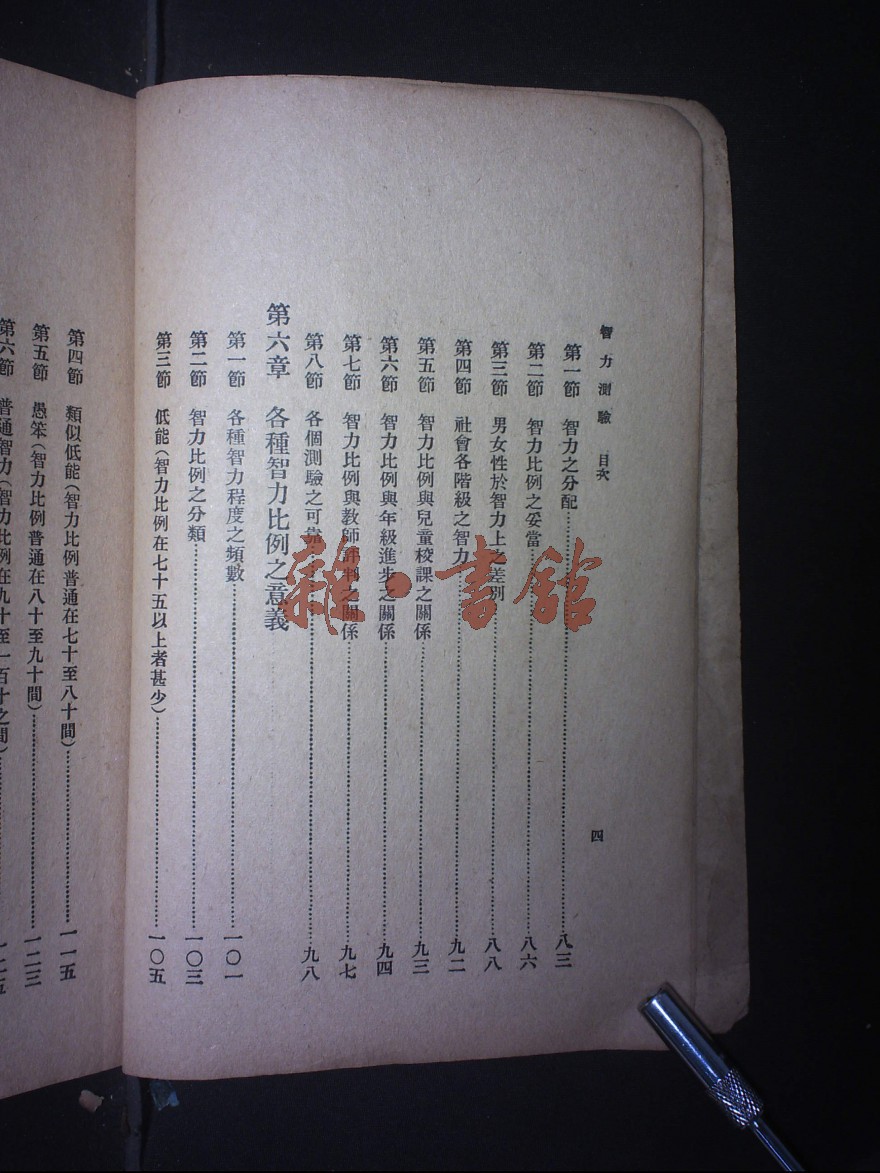 智力測驗 目次
四
第一節 智力之分配……八三
第二節 智力比例之妥當……八六
第三節 男女性於智力上之差別……八八
第四節 社會各階級之智力……九二
第五節 智力比例與兒童校課之關係……九三
第六節 智力比例與年級進步之關係……九四
第七節 智力比例與教師評判之關係……九七
第八節 各個測驗之可靠……九八
第六章 各種智力比例之意義
第一節 各種智力程度之頻數……一〇一
第二節 智力比例之分類……一〇三
第三節 低能(智力比例在七十五以上者甚少)……一〇五
第四節 類似低能(智力比例普通在七十至八十間)……一一五
第五節 愚笨(智力比例普通在八十至九十間)……一二三
第六節 普通智力(智力比例在九十至一百十之間)……
雜·書館